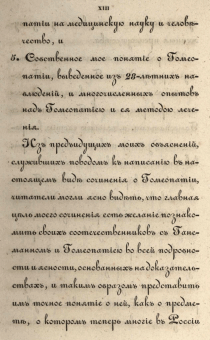 XIII
патіи на медицинскую науку и человѣ-
чество, и
5. Собственное мое понятіе о Гомео-
патіи, выведенное изъ 28-лѣтнихъ на-
блюденій, и многочисленныхъ опытовъ
надъ Гомеопатіею и ея методою лече-
нія.
Изъ предъидущихъ моихъ объясненій,
служившихъ поводомъ къ написанію въ на-
стоящемъ видѣ сочиненія о Гомеопатіи,
читатели могли ясно видѣть, что главная
цѣль моего сочиненія есть желаніе познако-
мить своихъ соотечественниковъ съ Ган-
неманномъ и Гомеопатіею во всей подробно-
сти и ясности, основанныхъ на доказатель-
ствахъ, и такимъ образомъ представить
имъ точное понятіе о ней, какъ о предме-
тѣ, о которомъ теперь многіе въ Россіи